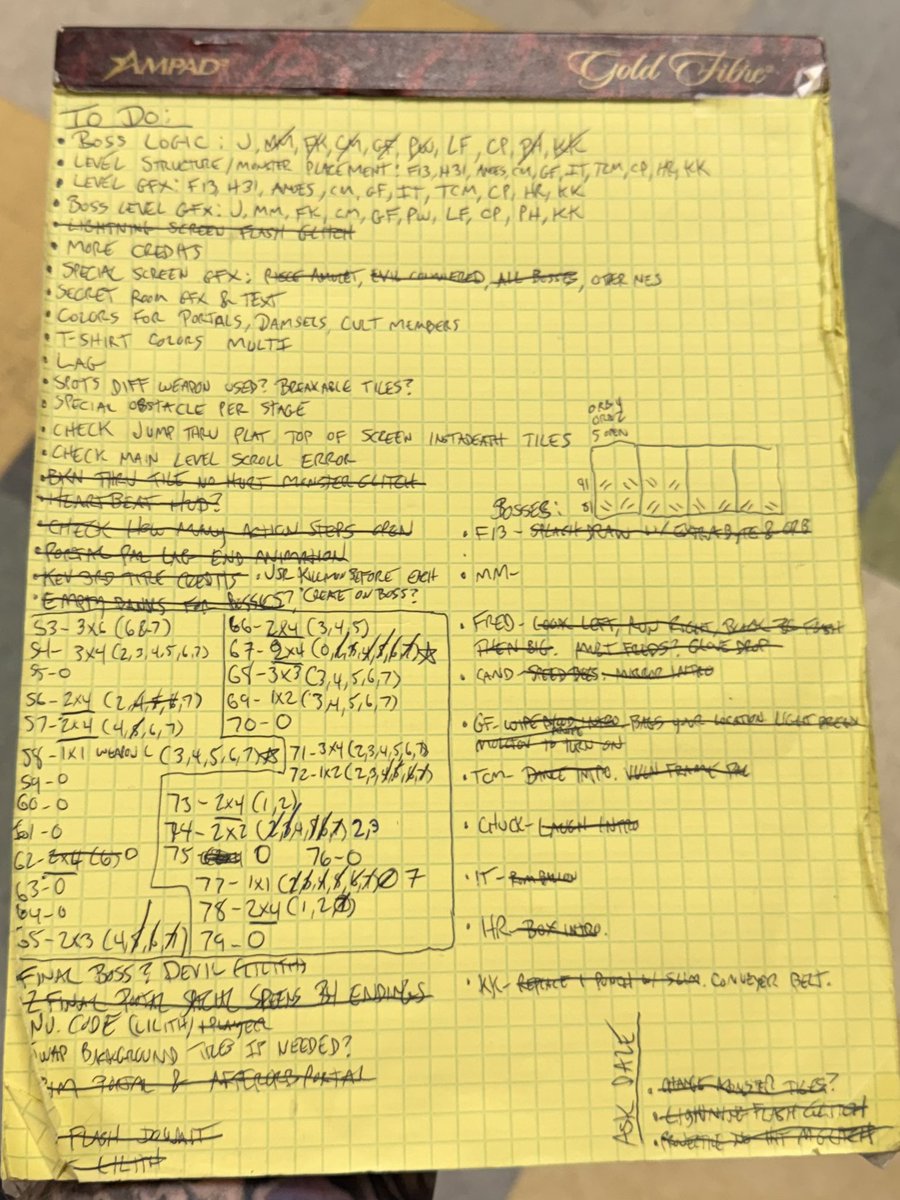 AMPAD
Gold Fibre
TO DO:
• BOSS LOGIC: J, MM, FK, CM, GF, PW, LF, CP, PH, KK
• LEVEL STRUCTURE/MONSTER PLACEMENT: F13, H31, AMES, CM, GF, IT, TCM, CP, HR, KK
• LEVEL GFX: F13 H31, AMES, CM, GF, IT, TCM, CP, HR, KK
• BOSS LEVEL GFX: J, MM, FK, CM, GF, PW, LF, CP, PH, KK
• LIGHTNING SCREEN FLASH GLITCH
• MORE CREDITS
• SPECIAL SCREEN GFX: PIECE AMULET, EVIL CONQUERED, ALL BOSSES, OTHER NES
• SECRET ROOM GFX & TEXT
• COLORS FOR PORTALS, DAMSELS, CULT MEMBERS
• T-SHIRT COLORS MULTI
• LAG
• SPOTS DIFF WEAPON USED? BREAKABLE TILES?
• SPECIAL OBSTACLE PER STAGE
• CHECK JUMP THRU PLAT TOP OF SCREEN INSTADEATH TILES
• CHECK MAIN LEVEL SCROLL ERROR
• BKN THRU TILE NO HURT MONSTER GLITCH
• HEARTBEAT HUD?
• CHECK HOW MANY ACTION STEPS OPEN
• PORTAL PAL LAG END ANIMATION
• KEV 3RD TITLE CREDITS • USE KILLMON BEFORE EACH
• EMPTY BANKS FOR BOSSES? CREATE ON BOSS?
53-3x6 (6&7)
54-3x4 (2,3,4,5,6,7)
55-0
56-2x4 (2,4,5,6,7)
57-2x4 (4,5,6,7)
58-1x1 WEAPON (3,4,5,6,7)
59-0
60-0
61-0
62-2x4 (6) 0
63-0
64-0
65-2x3 (4,5,6,7)
66-2x4 (3,4,5)
67-2x4
68-3x3 (3,4,5,6,7)
69-1x2 (3,4,5,6,7)
70-0
71-3x4 (2,3,4,5,6,7)
72-1x2 (2,3,4,5,6,7)
73-2x4 (1,2)
74-2x2 2,3
75 0 76-0
77-1x1 7
78-2x4 (1,2
79-0
FINAL BOSS? DEVIL (LILITH)
2 FINAL PORTAL SPECIAL SCREENS BY ENDINGS
CODE (LILITH/+PLAYER
SWAP BACKGROUND IF NEEDED?
PORTAL & AFTERORB PORTAL
FLASH
LILITH
ORB 4
ORB 2
5 OPEN
91
81
BOSSES:
• F13- SPLASH DRAW W/ EXTRA BYTE & ORB
• MM-
• FRED- LOOK LEFT, RUN RIGHT, FLASH
THEN BIG. MULTI FREDS? GLOVE DROP
• CAND- SPEED BEES. MIRROR INTRO
• GF- INTRO YOUR LOCATION LIGHT
TO TURN ON
• TCM- DANCE INTRO. VULN FRAME PAL
• CHUCK- LAUGH INTRO
• IT- BALLOON
• HR- BOX INTRO.
• KK- REPLACE 1 PUNCH W/ CONVEYER BELT.
ASK DALE
• CHANGE MONSTER TILES?
• LIGHTNING FLASH GLITCH
• PROJECTILE NO HIT M GLITCH